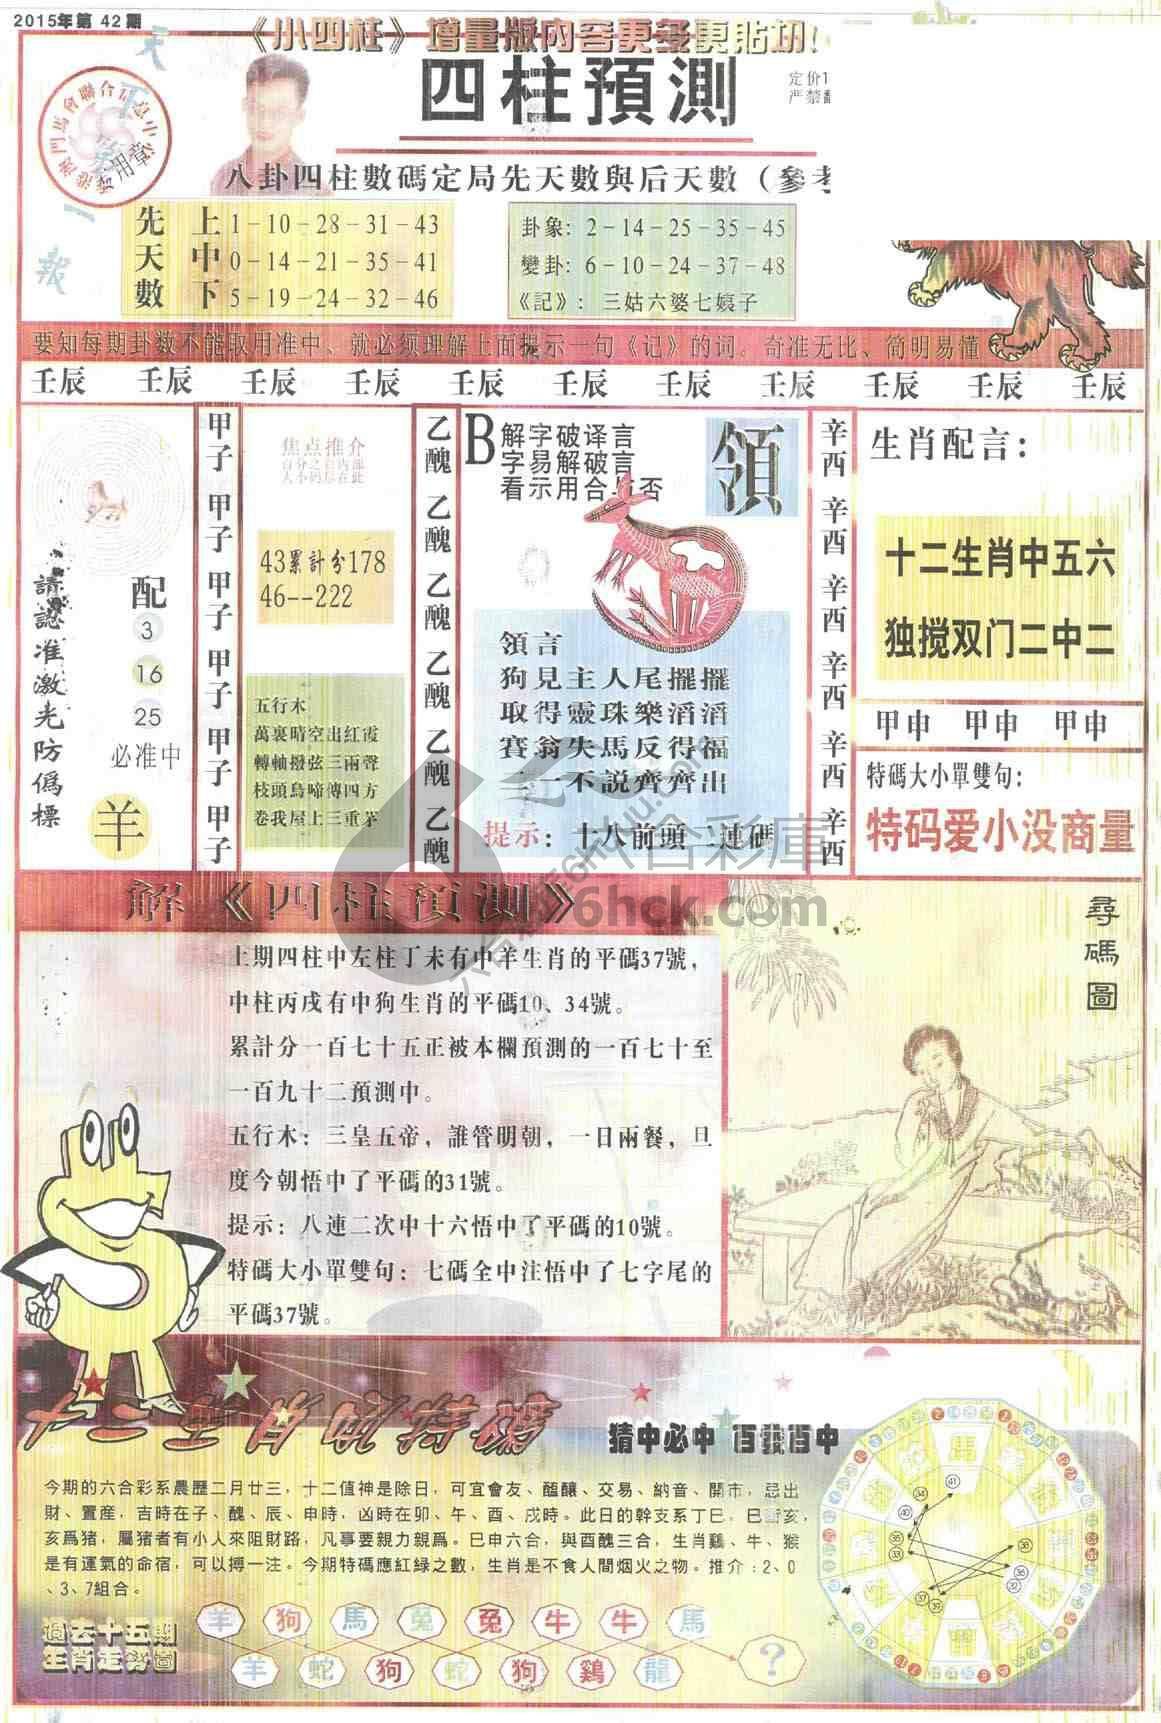 2015年第 42 期
《小四柱》增量版内容更多更貼切
四柱預測
定价1
严禁
天
一
報
八卦四柱數碼定局先天數與后天數（參考
先天數
上 1－10－28－31－43
中 0－14－21－35－41
下 5－19－24－32－46
卦象: 2－14－25－35－45
變卦: 6－10－24－37－48
《記》: 三姑六婆七姨子
要知每期卦数不能取用准中、就必须理解上面提示一句《记》的词。奇准无比、简明易懂
壬辰 壬辰 壬辰 壬辰 壬辰 壬辰 壬辰 壬辰 壬辰 壬辰 壬辰
請認准激光防僞標
配
3
16
25
必准中
羊
甲子 甲子 甲子 甲子 甲子 甲子
焦点推介
百分之百内部
大小码尽在此
43累計分178
46--222
五行木
萬裏晴空出紅霞
轉軸撥弦三兩聲
枝頭鳥啼傳四方
卷我屋上三重茅
乙醜 乙醜 乙醜 乙醜 乙醜 乙醜
B
解字破译言
字易解破言
看示用合与否
領
領言
狗見主人尾擺擺
取得靈珠樂滔滔
賽翁失馬反得福
三一不説齊齊出
提示: 十八前頭二連碼
辛酉 辛酉 辛酉 辛酉 辛酉 辛酉
生肖配言:
十二生肖中五六
独搅双门二中二
甲申 甲申 甲申
特碼大小單雙句:
特码爱小没商量
六合彩庫
66hck.com
解《四柱預測》
上期四柱中左柱丁未有中羊生肖的平碼37號,
中柱丙戌有中狗生肖的平碼10、34號。
累計分一百七十五正被本欄預測的一百七十至
一百九十二預測中。
五行木: 三皇五帝, 誰管明朝, 一日兩餐, 旦
度今朝悟中了平碼的31號。
提示: 八連二次中十六悟中了平碼的10號。
特碼大小單雙句: 七碼全中注悟中了七字尾的
平碼37號。
尋碼圖
猜中必中 百發百中
今期的六合彩系農歷二月廿三, 十二值神是除日, 可宜會友、醞釀、交易、納音、開市, 忌出
財、置産, 吉時在子、醜、辰、申時, 凶時在卯、午、酉、戌時。此日的幹支系丁巳, 巳衝亥,
亥爲猪, 屬猪者有小人來阻財路, 凡事要親力親爲。巳申六合, 與酉醜三合, 生肖鷄、牛、猴
是有運氣的命宿, 可以搏一注。今期特碼應紅緑之數, 生肖是不食人間烟火之物。推介: 2、0
、3、7組合。
過去十五期
生肖走势圖
羊 狗 馬 兔 兔 牛 牛 馬
羊 蛇 狗 蛇 狗 鷄 龍 ?